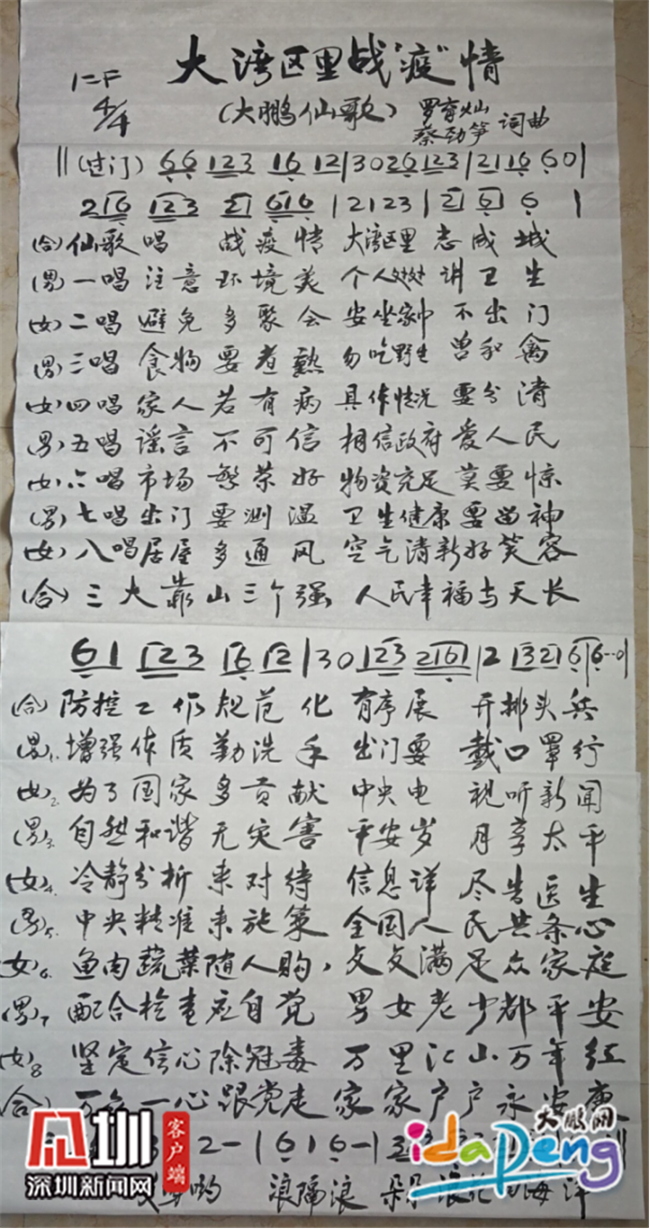 大湾区里战“疫”情
1=F
4/4
(大鹏仙歌) 罗育灿
蔡劲笋 词曲
(过门) 66 123 16 12|30 26 123|21 16 60|
216 123 21 616|2123|21 61 6|
(合)仙歌唱 战疫情 大湾区里 志成城
(男)一唱 注意 环境美 个人处处 讲卫生
(女)二唱 避免 多聚会 安坐家中 不出门
(男)三唱 食物 要煮熟 勿吃野生 兽和禽
(女)四唱 家人 若有病 具体情况 要分清
(男)五唱 谣言 不可信 相信政府 爱人民
(女)六唱 市场 繁荣好 物资充足 莫要惊
(男)七唱 出门 要测温 卫生健康 要留神
(女)八唱 居屋 多通风 空气清新 好笑容
(合)三大靠山三个强 人民幸福与天长
61 123 16 12|30 123 2161|2 1321 6 6-0|
(合)防控工作规范化 有序展 开排头兵
(男)1.增强体质勤洗手 出门要 戴口罩行
(女)2.为了国家多贡献 中央电 视听新闻
(男)3.自然和谐无灾害 平安岁 月享太平
(女)4.冷静分析来对待 信息详 尽告医生
(男)5.中央精准来施策 全国人 民共条心
(女)6.鱼肉蔬菜随人购,文文满足众家庭
(男)7 配合检查应自觉 男女老少都平安
(女)8 坚定信心除冠毒 万里江山万年红
(合)万众一心跟党走 家家户户永安康
2-|6 1 6-|
哟 浪隔浪 朵朵浪花 海洋
深圳
客户端
深圳新闻网
大鹏网
idapeng